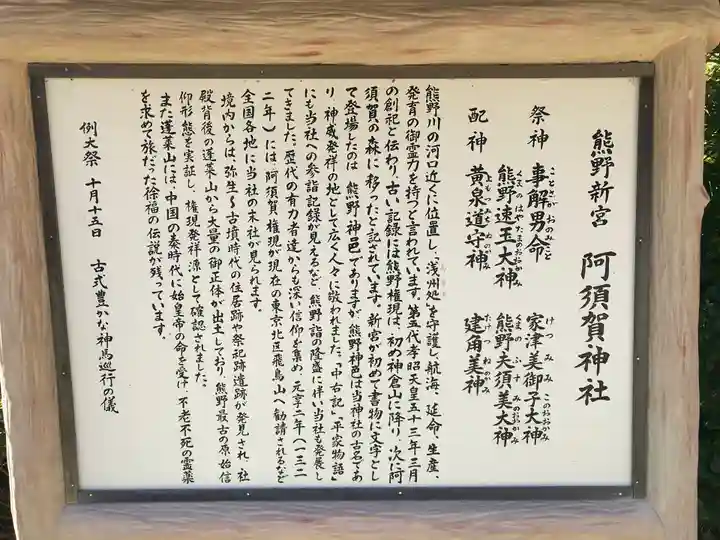 熊野新宮 阿須賀神社
祭神 事解男命 家津美御子大神
熊野速玉大神 熊野夫須美大神
配神 黄泉道守神 建角美神
熊野川の河口近くに位置し、「浅州処」を守護し、航海、延命、生産、
発育の御霊力を持つと言われています。第五代孝昭天皇五十三年三月
の創祀と伝わり、古い記録には熊野権現は、初め神倉山に降り、次に阿
須賀の森に移ったと記されています。新宮が初めて書物に文字とし
て登場したのは 熊野神邑でありますが 熊野神邑は当神社の古名であ
り、神威発祥の地として広く人々に敬われました。「中右記」「平家物語」
にも当社への参詣記録が見えるなど 熊野詣の隆盛に伴い当社も発展し
てきました。歴代の有力者達からも深い信仰を集め、元享二年(一三二
二年)には、阿須賀権現が現在の東京北区飛鳥山へ勧請されるなど
全国各地に当社の末社が見られます。
境内からは、弥生〜古墳時代の住居跡や祭祀跡遺跡が発見され、社
殿背後の蓬莱山から大量の御正体が出土しており 熊野最古の原始信
仰形態を実証し、権現発祥源として確認されました。
また蓬莱山には、中国の秦時代に始皇帝の命を受け 不老不死の霊薬
を求めて旅だった徐福の伝説が残っています。
例大祭 十月十五日 古式豊かな神馬巡行の儀